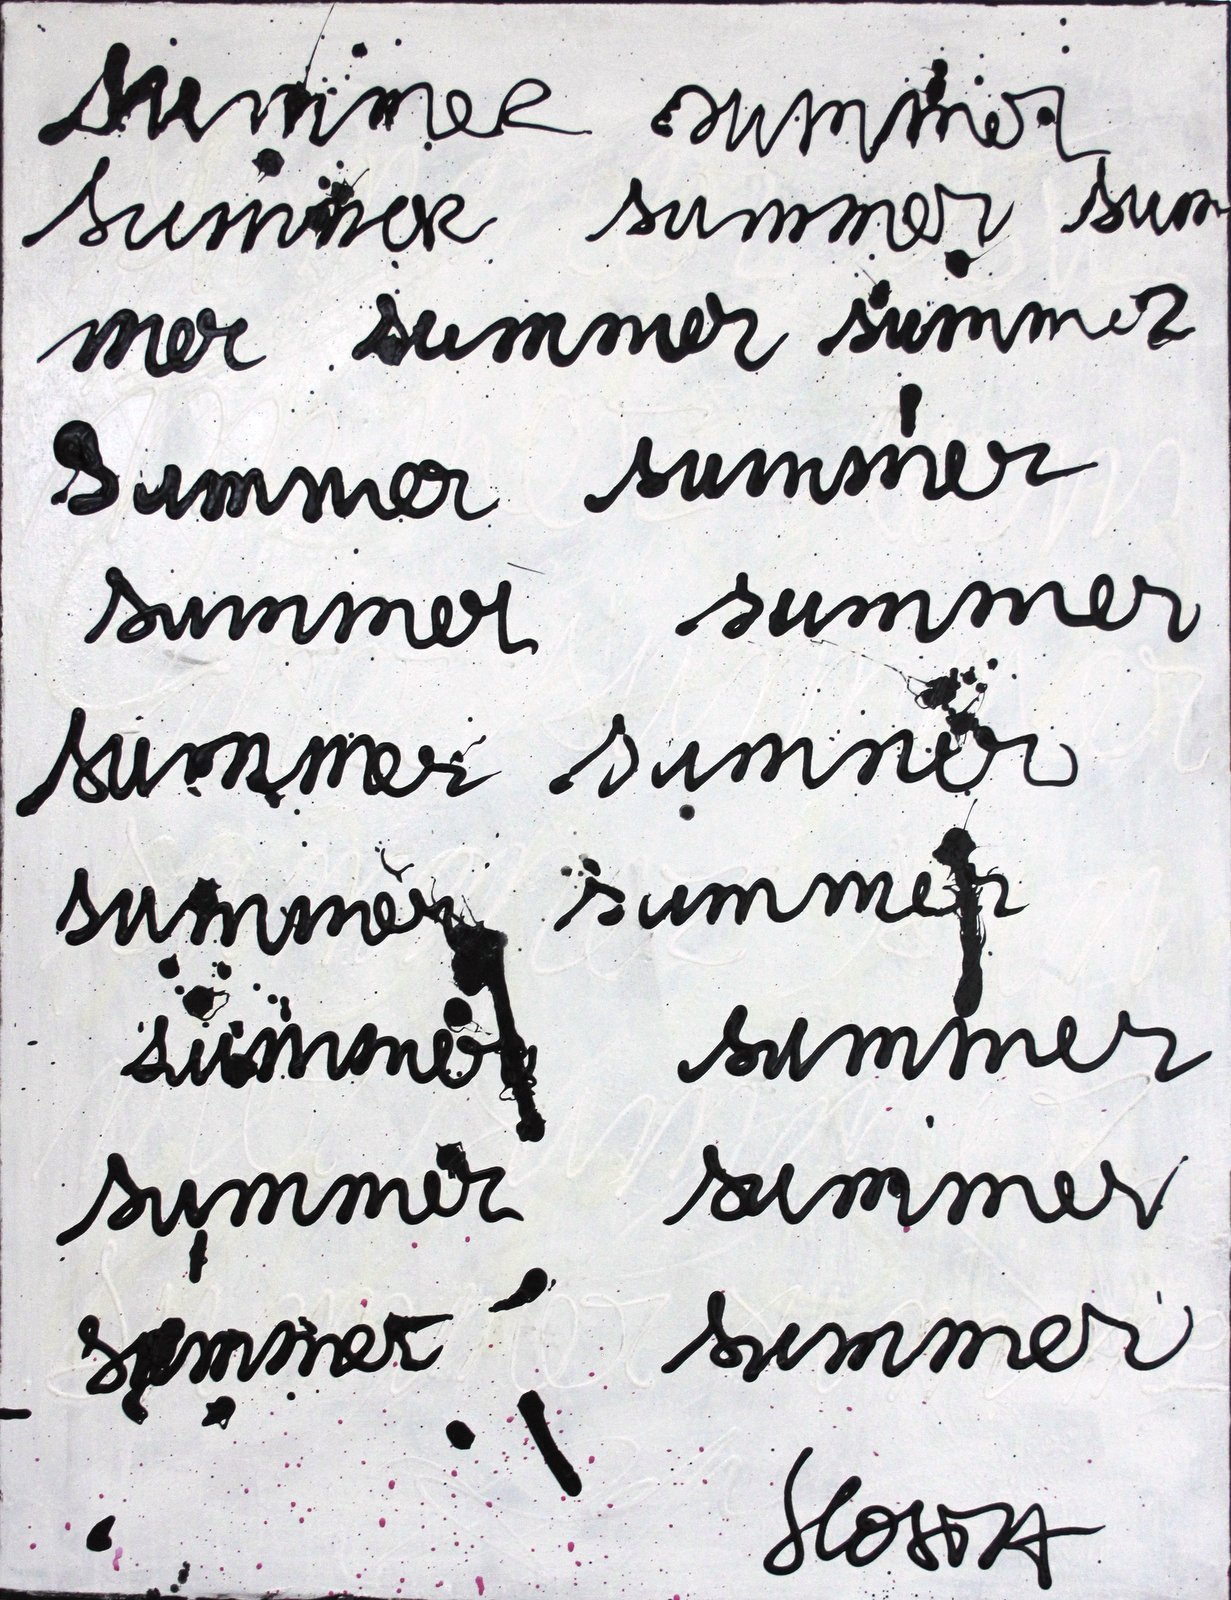 summer summer
summer summer sum
mer summer summer
Summer summer
summer summer
summer summer
summer summer
summer summer
summer summer
summer summer